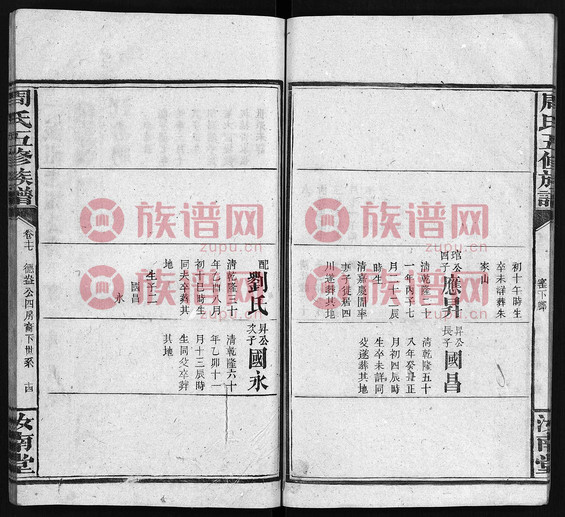 周氏五修族譜
汝南堂
初十午時生
卒未詳葬朱
家山
琯公四子
應昇
清乾隆二十
一年丙子七
月二十八辰
時生
清嘉慶間率
妻子徙居四
川遂葬其地
昇公長子
國昌
清乾隆五十
八年癸丑正
月初四辰時
生卒未詳同
父遂葬其地
配
劉氏
清乾隆三十
年乙酉八月
初十巳時生
同夫卒葬其
地
生子二
國昌
永
昇公次子
國永
清乾隆六十
年乙卯十一
月十三辰時
生同父卒葬
其地
周氏五修族譜
卷七
德崟公四房裔下世系
十四
汝南堂
族谱网
zupu.cn
族谱网
zupu.cn
族谱网
zupu.cn
族谱网
zupu.cn